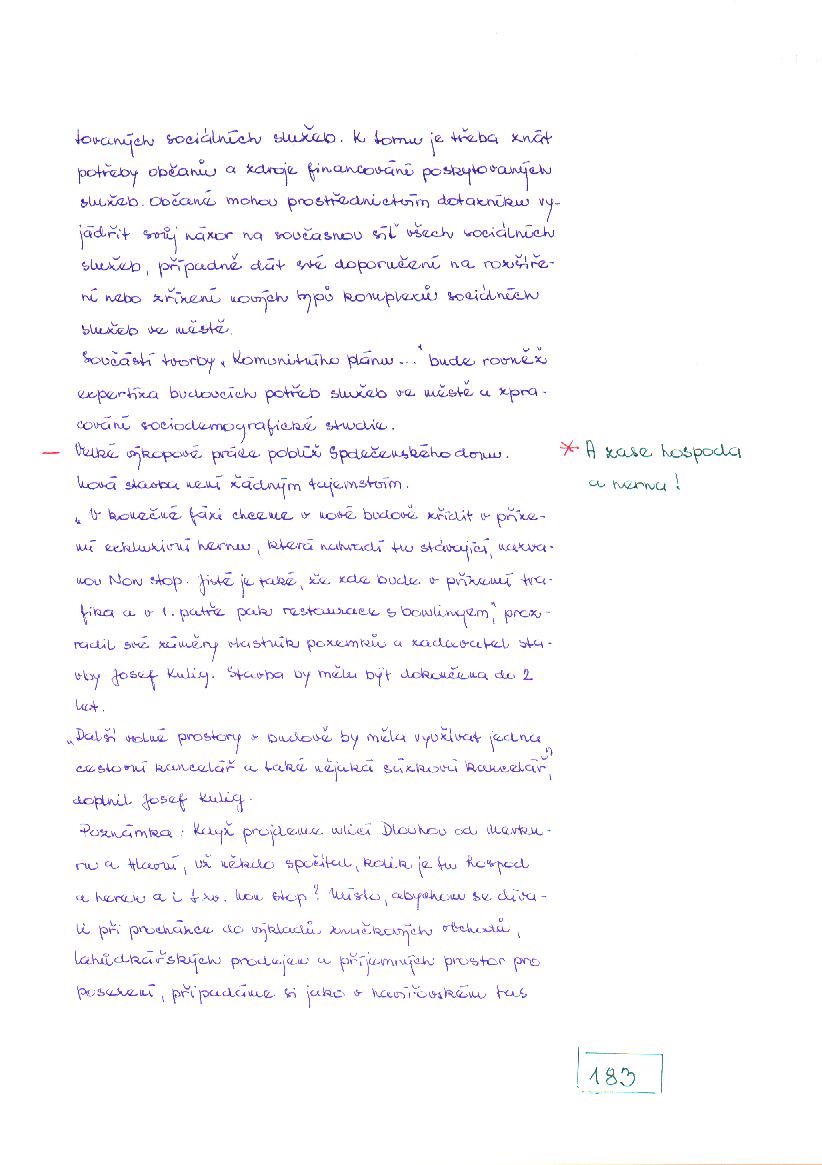 tovaných sociálních služeb. K tomu je třeba znát
potřeby občanů a zdroje financování poskytovaných
služeb. Občané mohou prostřednictvím dotazníku vy-
jádřit svůj názor na současnou síť všech sociálních
služeb, případně dát své doporučení na rozšíře-
ní nebo zřízení nových typů komplexů sociálních
služeb ve městě.
Součástí tvorby „Komunitního plánu..." bude rovněž
expertíza budoucích potřeb služeb ve městě a zpra-
cování sociodemografické studie.
— Velké výkopové práce poblíž Společenského domu.
* A zase hospoda
a herna!
Nová stavba není žádným tajemstvím.
„V konečné fázi chceme v nové budově zřídit v příze-
mí exkluzivní hernu, která nahradí tu stávající, nazva-
nou Non stop. Jisté je také, že zde bude v přízemí tra-
fika a v 1. patře pak restaurace s bowlingem", proz-
radil své záměry vlastník pozemků a zadavatel sta-
vby Josef Kulig. Stavba by měla být dokončena do 2
let.
„Další volné prostory v budově by měla využívat jedna
cestovní kancelář a také nějaká sázková kancelář",
doplnil Josef Kulig.
Poznámka: Když projdeme ulicí Dlouhou od Merku-
ru a Hlavní, už někdo spočítal, kolik je tu hospod
a heren a i tzv. non stop? Místo, abychom se díva-
li při procházce do výkladů značkových obchodů,
lahůdkářských prodejen a příjemných prostor pro
posezení, připadáme si jako v havířovském las
183